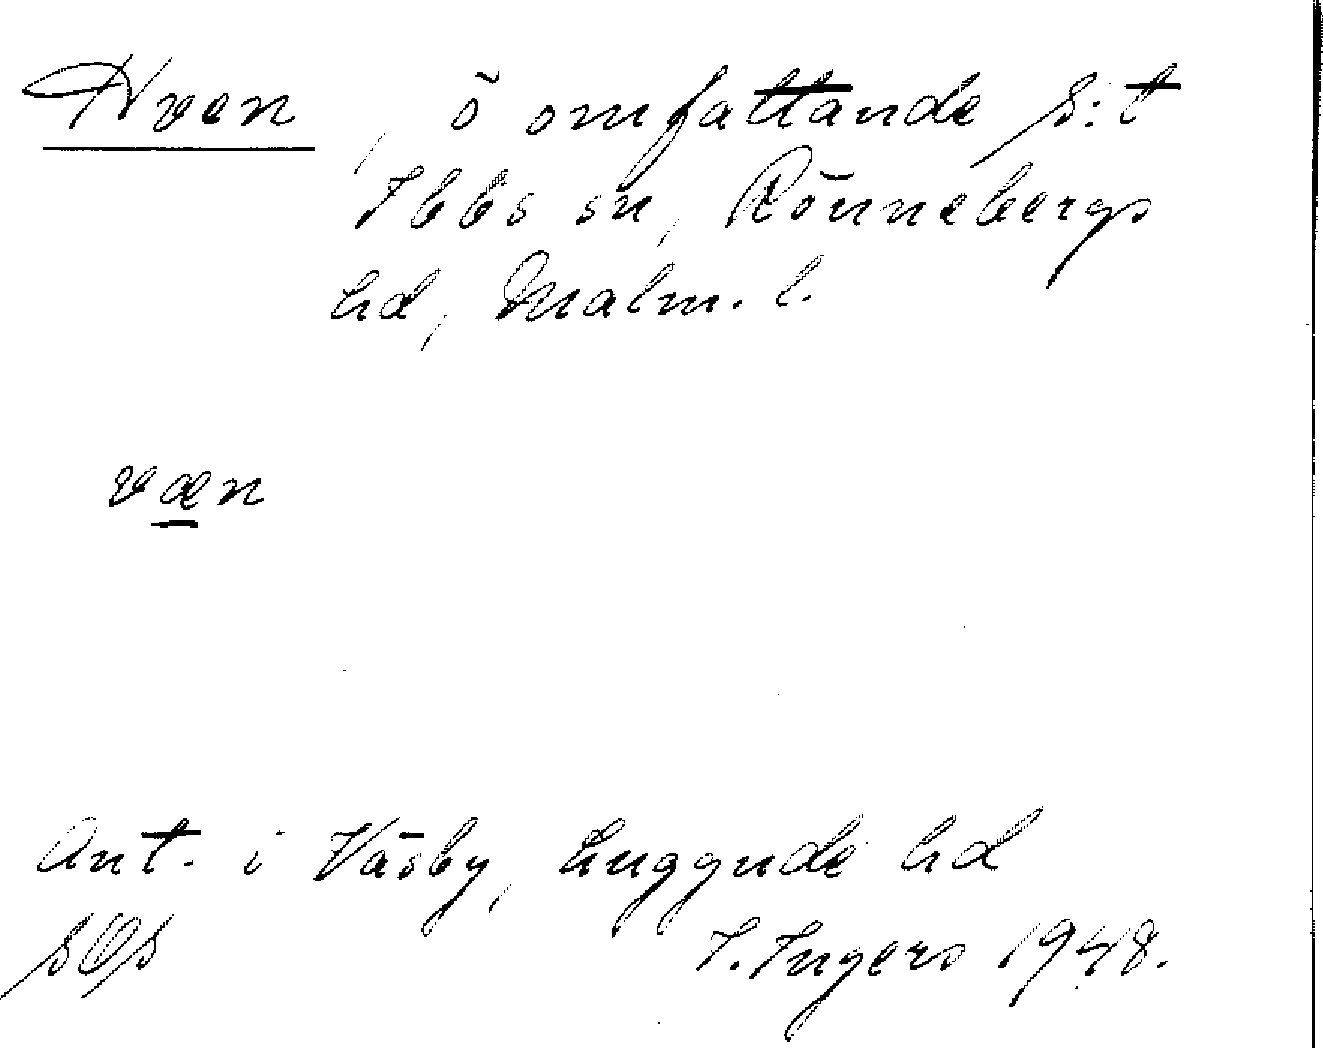 Hven, ö omfattande S:t
Ibbs sn, Rönnebergs
hd, Malm. l.
væn
Ant. i Väsby, Luggude hd
I. Ingers 1948.